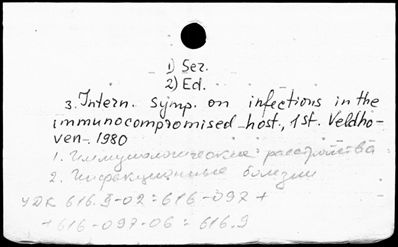 1) Ser.
2) Ed.
3. Intern. symp. on infections in the
immunocompromised host., 1st. Veldho-
ven. 1980
1. Иммунологические расстройства
2. Инфекционные болезни
УДК 616.9-02:616-097 +
+ 616-097-06:616.9